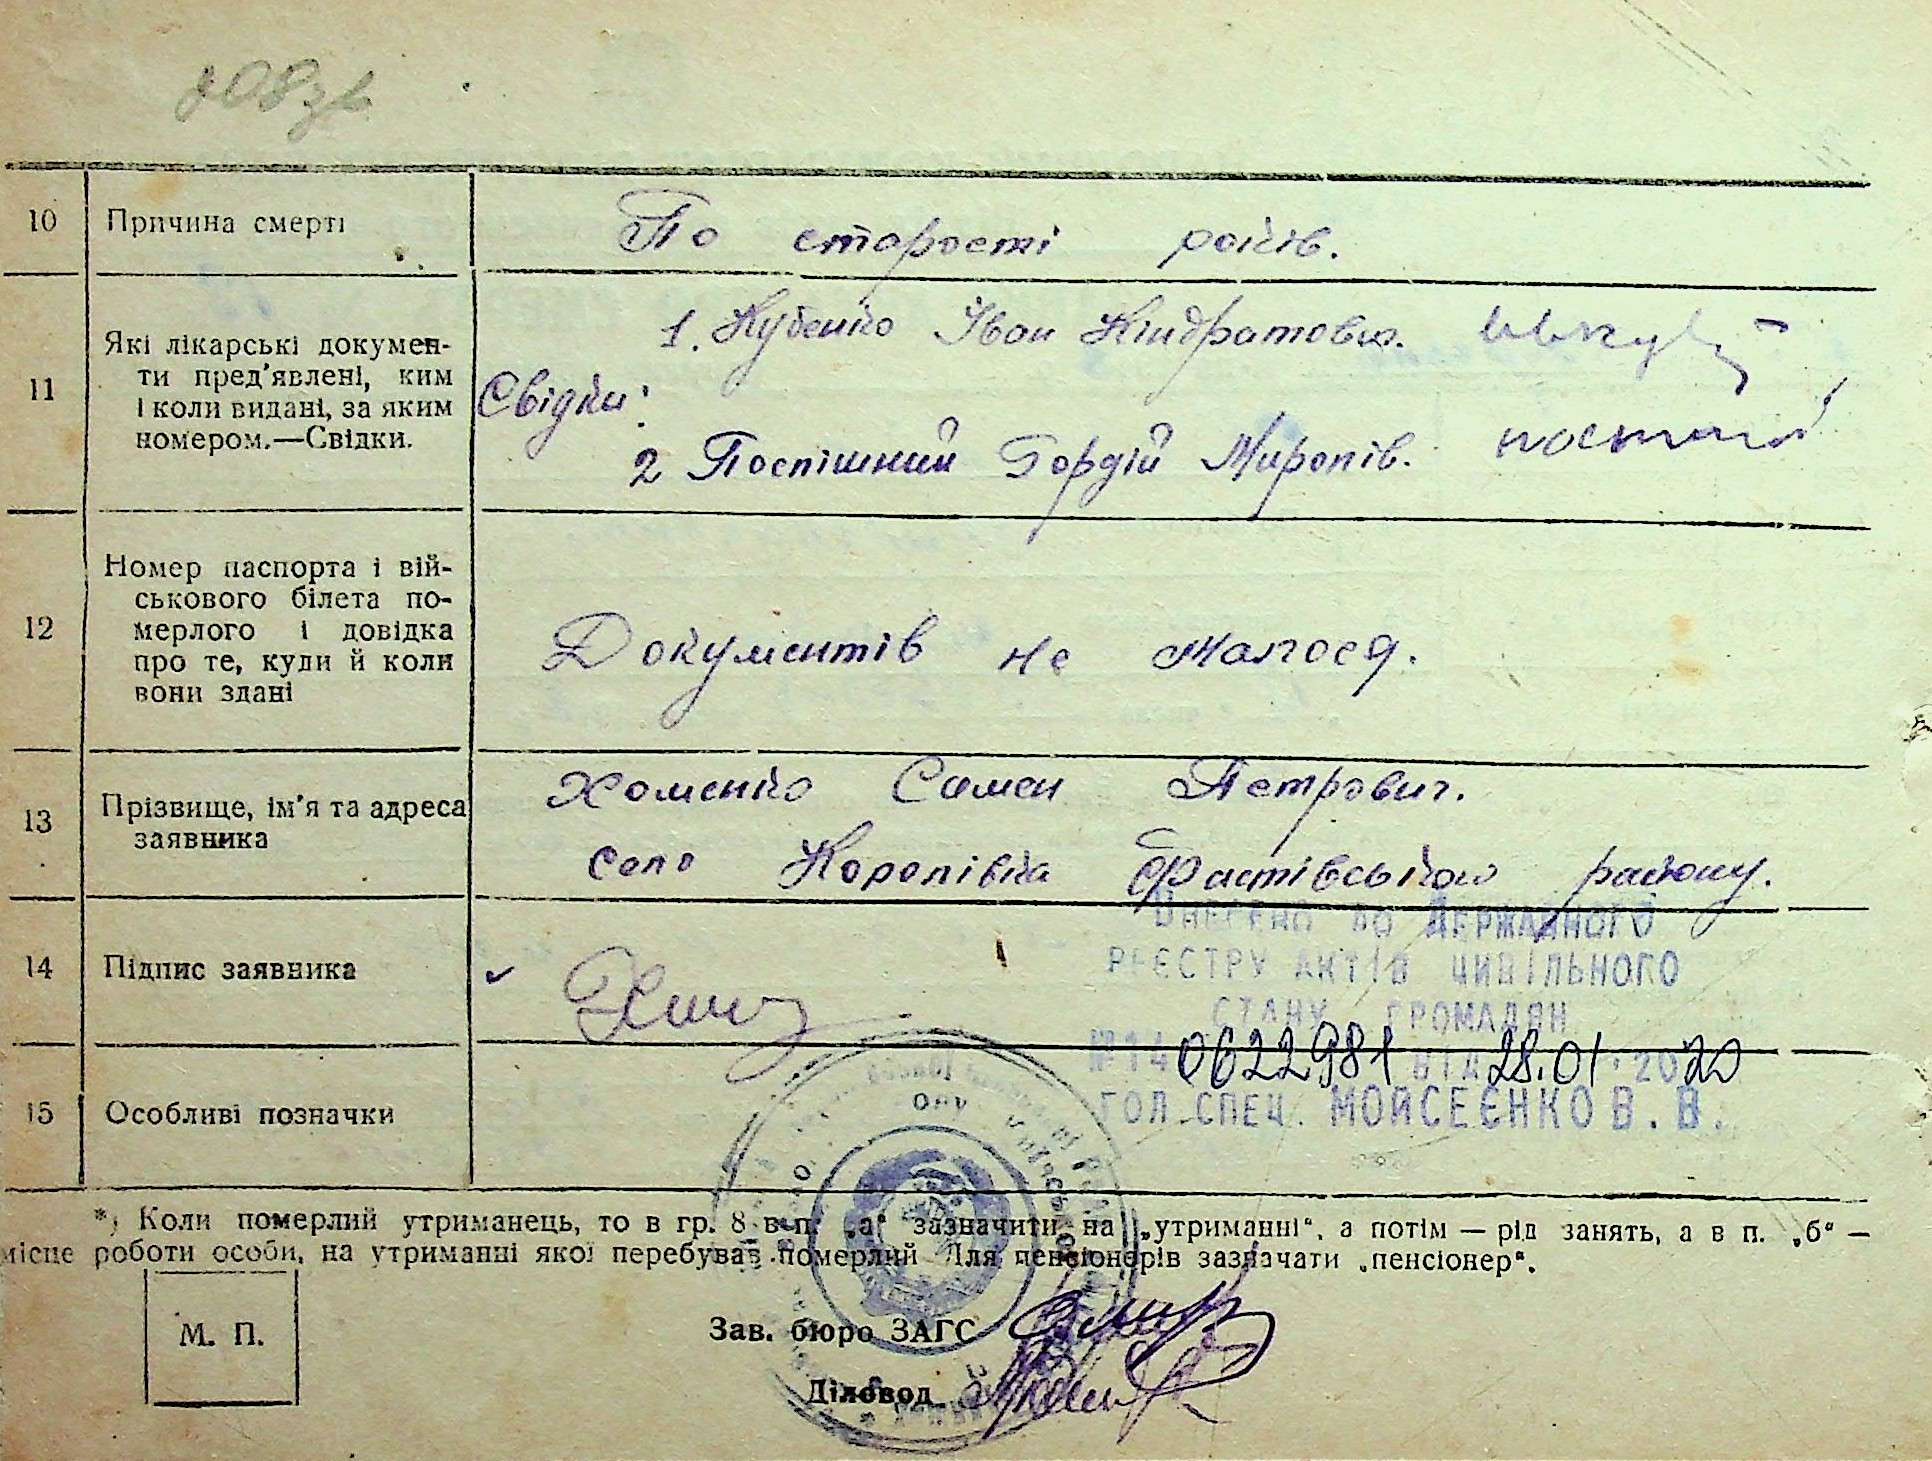 208зв
10 Причина смерті По старості років.
11 Які лікарські докумен-
ти пред'явлені, ким
і коли видані, за яким
номером.—Свідки.
Свідки:
1. Кубенко Іван Кіндратович.
2 Поспішний Гордій Миропів.
12 Номер паспорта і вій-
ськового білета по-
мерлого і довідка
про те, куди й коли
вони здані
Документів не малося.
13 Прізвище, ім'я та адреса
заявника
Хоменко Семен Петрович.
село Королівка Фастівського району.
14 Підпис заявника
15 Особливі позначки
Внесено до Державного
реєстру актів цивільного
стану громадян
№14 0622981 від 28.01.2020
гол.спец. Мойсеєнко В.В.
*) Коли померлий утриманець, то в гр. 8 в п. „а“ зазначити на „утриманні“, а потім — рід занять, а в п. „б“ —
місце роботи особи, на утриманні якої перебував померлий Для пенсіонерів зазначати „пенсіонер“.
М. П.
Зав. бюро ЗАГС
Діловод